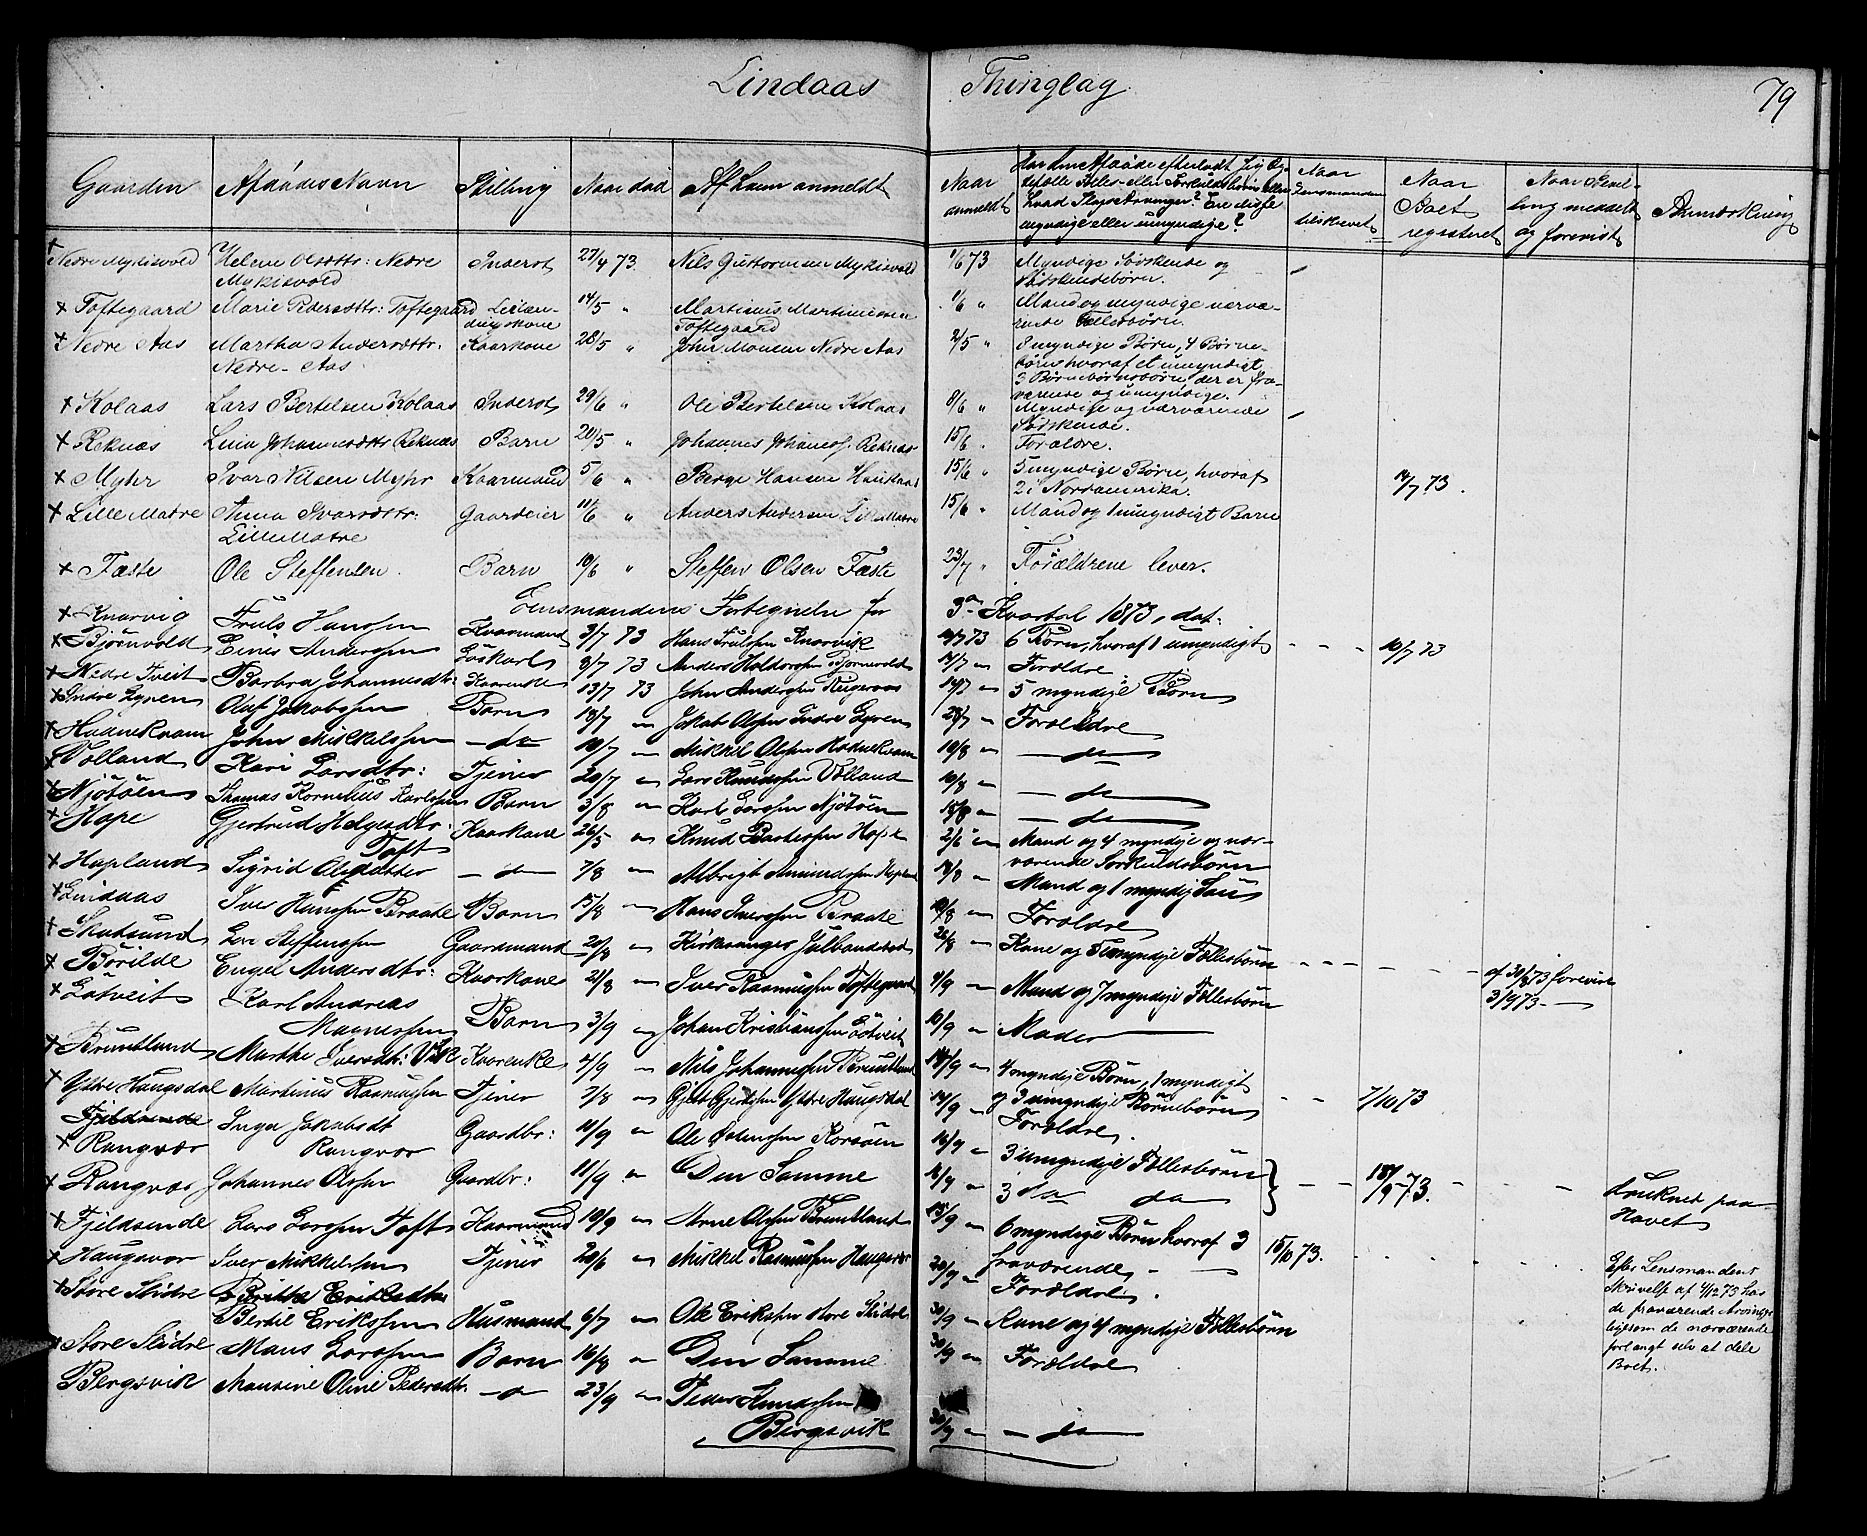 Lindaas Thinglag. 79
Gaarden Afdødes Navn Stilling Naar død Af hvem anmeldt Naar anmeldt Har den Afdøde efterladt sig Ægtefælle Fælles- eller Særkuldsbørn eller hvad Slags Arvinger? Ere disse myndige eller umyndige? Naar Lensmanden tilskrevet Naar Boet registreret Naar Bevilling meddelt og forevist Anmærkning
+ Nedre Mykisvold Helene Olsdttr: Nedre Mykisvold Inderst 27/4 73. Nils Guttormsen Mykisvold 1/6 73 Myndige Sødskende og Sødskendebørn.
x Toftegaard Marie Pedersdttr: Toftegaard Leilændingskone 14/5 " Martinus Martinussen Toftegaard 1/6 " Mand og myndige nærværende Fællesbørn.
x Nedre Aas Martha Andersdttr: Nedre-Aas. Kaarkone 28/5 " John Monsen Nedre Aas 2/5 " 8 myndige Børn, 4 Børnebørn hvoraf et umyndigt 3 Børnebørnsbørn, der er fraværende og umyndige.
x Kolaas Lars Bertelsen Kolaas Inderst 29/6 " Ole Bertelsen Kolaas 8/6 " Myndige og nærværende Sødskende.
x Reknæs Lina Johannesdttr Reknæs Barn 20/5 " Johannes Johannes. Reknæs 15/6 . Forældre.
x Myhr Ivar Nilsen Myhr Kaarmand 5/6 " Berge Hansen 15/6 " 5 myndige Børn, hvoraf 2 i Nordamerika. 73.
x Lille Matre Anna Ivarsdttr: Lille Matre Gaardeier 11/6 " Anders Andersen Lille Matre 15/6 " Mand og 1 umyndigt Barn
x Fæste Ole Steffensen. Barn 10/6 " Steffen Olsen Fæste 23/7 " Forældrene lever.
Lensmandens Fortegnelse for 3die Kvartal 1873, dat:
x Knarvig Truls Hansen Kaarmand 3/7 73 Hans Trulsen Knarvik 73 6 Børn, hvoraf 1 umyndigt - - - 10/7 73
x Bjørnvold Einis Andersen Løskarl 9/7 73 Anders Haldorsen Bjørnevold /7 " Forældre
x Nedre Tveit Barbra Johannesdtr: Kaarenke 13/7 73 John Andersen 14/7 " 5 myndige Børn
x Indre Lyren Olaf Jakobsen Barn 13/7 " Jakob Olsen Indre Lyren 28/7 " Forældre
x Hodnekvam John Mikkelsen - do 19/7 - Mikkel Olsen Hodnekvam 10/8 " - do -
x Volland Kari Larsdtr: Tjener 20/7 " Lars Knudsen Volland 10/8 " - do -
x Njøtøen Thomas Kornelius Karlsen Barn 3/8 " Karl Larsen Njøtøen 15/8 " - do -
x Hope Gjertrud Helgesdtr: Toft Kaarkone 26/5 " Knud Bertelsen Hope 2/6 " Mand og 4 myndige og nærværende Særkuldsbørn
x Hopland Sigrid Olsdatter - do - 7/8 " Albrigt Amundsen Hopland 10/8 " Mand og 1 myndig Søn
x Lindaas Iver Hansen Braate Barn 15/8 " Hans Iversen Braate 19/8 " Forældre
x Skodsund Lars Steffensen Gaardmand 20/8 " Kirkesanger 26/8 " Kone og 5 umyndige Fællesbørn - - - - - - af 30/8 73 forevist 3/9 73 -
x Børilde Engel Andersdtr: Kaarkone 21/8 " Iver Rasmussen Toftegaard 4/9 " Mand og 7 myndige Fællesbørn
x Løtveit Karl Andreas Magnessen Barn 3/9 " Johan Kristiansen Løtveit 10/9 " Moder
x Bruntland Marthe Iversdtr: Vik Kaarenke 4/9 " Nils Johannessen Bruntland 14/9 " 4 myndige Børn, 1 myndigt og 3 umyndige Børnebørn - - 7/10 73
x Ydre Haugsdal Martinus Rasmussen Tjener 7/8 " Gjert Gjertsen Ydre Haugsdal 14/9 " Forældre.
Fjeldsende x Rongvær Inga Jakobsdt Rongvær Gaardbr: 11/9 " Ole Østensen Korsøen 16/9 " 3 umyndige Fællesbørn
x Rongvær Johannes Olsen Gaardbr: 11/9 " Den Samme 16/9 " 3 do do } - - 18/9 - 73. - - - Druknet paa Havet
x Fjeldsende Lars Larsen Toft Kaarmand 10/9 " Arne Olsen Bruntland 15/9 " 6 myndige Børn hvoraf 3 fraværende - 15/10 73. Efter Lensmandens Skrivelse af 4/12 73 har de fraværende Arvinge ligesom de nærværende forlangt selv at dele Boet.
x Haugsvær Iver Mikkelsen Tjener 20/6 " Mikkel Rasmussen Haugsvær 20/9 " Forældre.
x Store Skidre Brithe Eriksdtter Bertil Eriksen Husmand 6/7 " Ole Eriksen store Skidre 30/9 " Kone og 4 myndige Fællesbørn
x Store Skidre Mons Larsen Barn 16/8 " Den Samme 30/9 " Forældre
Bergsvik Mansine Oline Pedersdtr. - do - 23/9 " Peder Amundsen Bergsvik 30/9 " - do -